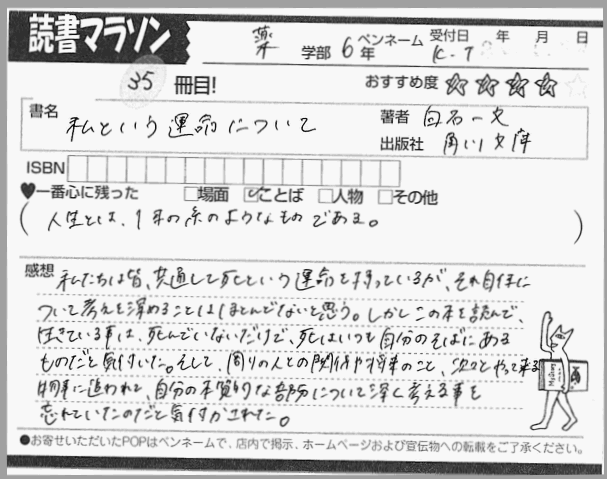 読書マラソン
薬 学部 6年 ペンネーム K.T 受付日 年 月 日
35 冊目! おすすめ度 ☆☆☆☆☆
書名 私という運命について
著者 白石一文
出版社 角川文庫
ISBN
♥一番心に残った □場面 ☑ことば □人物 □その他
(人生とは、1本の糸のようなものである。)
感想 私たちは皆、共通して死という運命を持っているが、それ自体に
ついて考えを深めることはほとんどないと思う。しかしこの本を読んで、
生きている事は、死んでいないだけで、死はいつも自分のそばにある
ものだと気付いた。そして、周りの人との関係や将来のこと、次々とやって来る
物事に追われて、自分の本質的な部分について深く考える事を
忘れていたのだと気付かされた。
●お寄せいただいたPOPはペンネームで、店内で掲示、ホームページおよび宣伝物への転載をご了承ください。